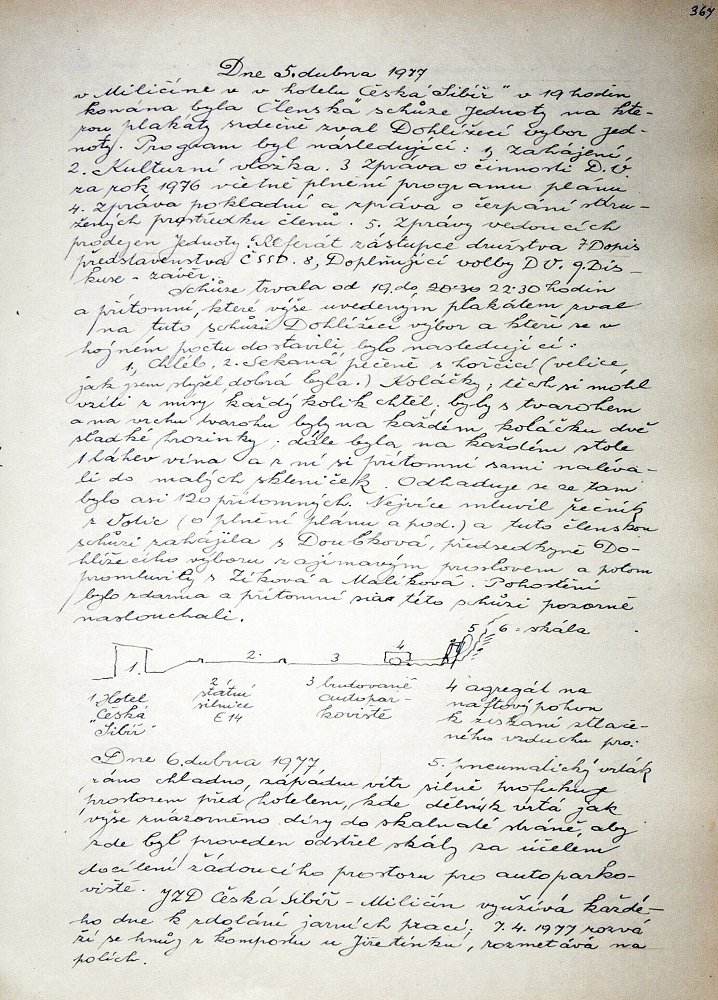 367
Dne 5. dubna 1977
v Miličíně v v hotelu Česká Sibiř" v 19 hodin
konána byla Členská" schůze Jednoty na kte-
rou plakáty srdečně zval Dohlížecí výbor jed-
noty. Program byl následující: 1, zahájení,
2. Kulturní vložka. 3 Zpráva o činnosti D.V.
za rok 1976 včetně plnění programu plánu
4. Zpráva pokladní a zpráva o čerpání sdru-
žených prostředku členů. 5. Zprávy vedoucích
prodejen Jednoty. Referát zástupce družstva 7 Dopis
představenstva ČSSD. 8, Doplňující volby DV. 9. Dis-
kuse - závěr.
Schůze trvala od 19. do 20.30 22.30 hodin
a přítomní, které výše uvedeným plakátem zval
na tuto schůzi Dohlížecí výbor a kteří se v
hojném počtu dostavili bylo následující:
1, Chléb, 2. Sekaná, pečeně s hořčicí (velice,
jak jsem slyšel dobrá byla.) Koláčky; těch si mohl
vzíti z mísy každý kolik chtěl. byly s tvarohem
a na vrchu tvarohu byly na každém koláčku dvě
sladké hrozinky; dále byla na každém stole
1 láhev vína a z ní si přítomní sami nalévá-
li do malých skleniček. Odhaduje se že tam
bylo asi 120 přítomných. Nejvíce mluvil řečník
z Votic (o plnění plánu a pod.) a tuto členskou
schůzi zahájila s Doubková, předsedkyně Do-
hlížecího výboru zajímavým proslovem a potom
promluvily s Zíková a Malíková. Pohostění
bylo zdarma a přítomní na této schůzi pozorně
naslouchali.
1. 2. 3 4 5 6 = skála
1 Hotel
"Česká
Sibiř"
2 státní
silnice
E 14
3 budované
autopar-
koviště
4 agregát na
naftový pohon
k získání stlače-
ného vzduchu pro:
5. pneumatický vrták
Dne 6. dubna 1977
ráno chladno, západní vítr silně profukuje
prostorem před hotelem, kde dělník vrtá jak
výše znázorněno díry do skalnaté stráně, aby
zde byl proveden odstřel skály za účelem
docílení žádoucího prostoru pro autoparko-
viště. JZD Česká Sibiř - Miličín využívá každé-
ho dne k zdolání jarních prací; 7.4.1977 rozvá
ží se hnůj z kompostu u Jiřetínků, rozmetává na
polích.